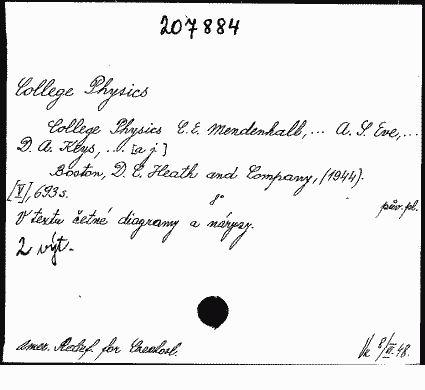 207884
College Physics
College Physics C. E. Mendenhall, ... A. S. Eve, ...
D. A. Keys, ... [a j.]
Boston, D. C. Heath and Company, (1944).
[V], 693 s. 8° pův. pl.
V textu četné diagramy a nárysy.
2 výt.
Amer. Relief. for Czechosl. Vk 8/VI. 48.